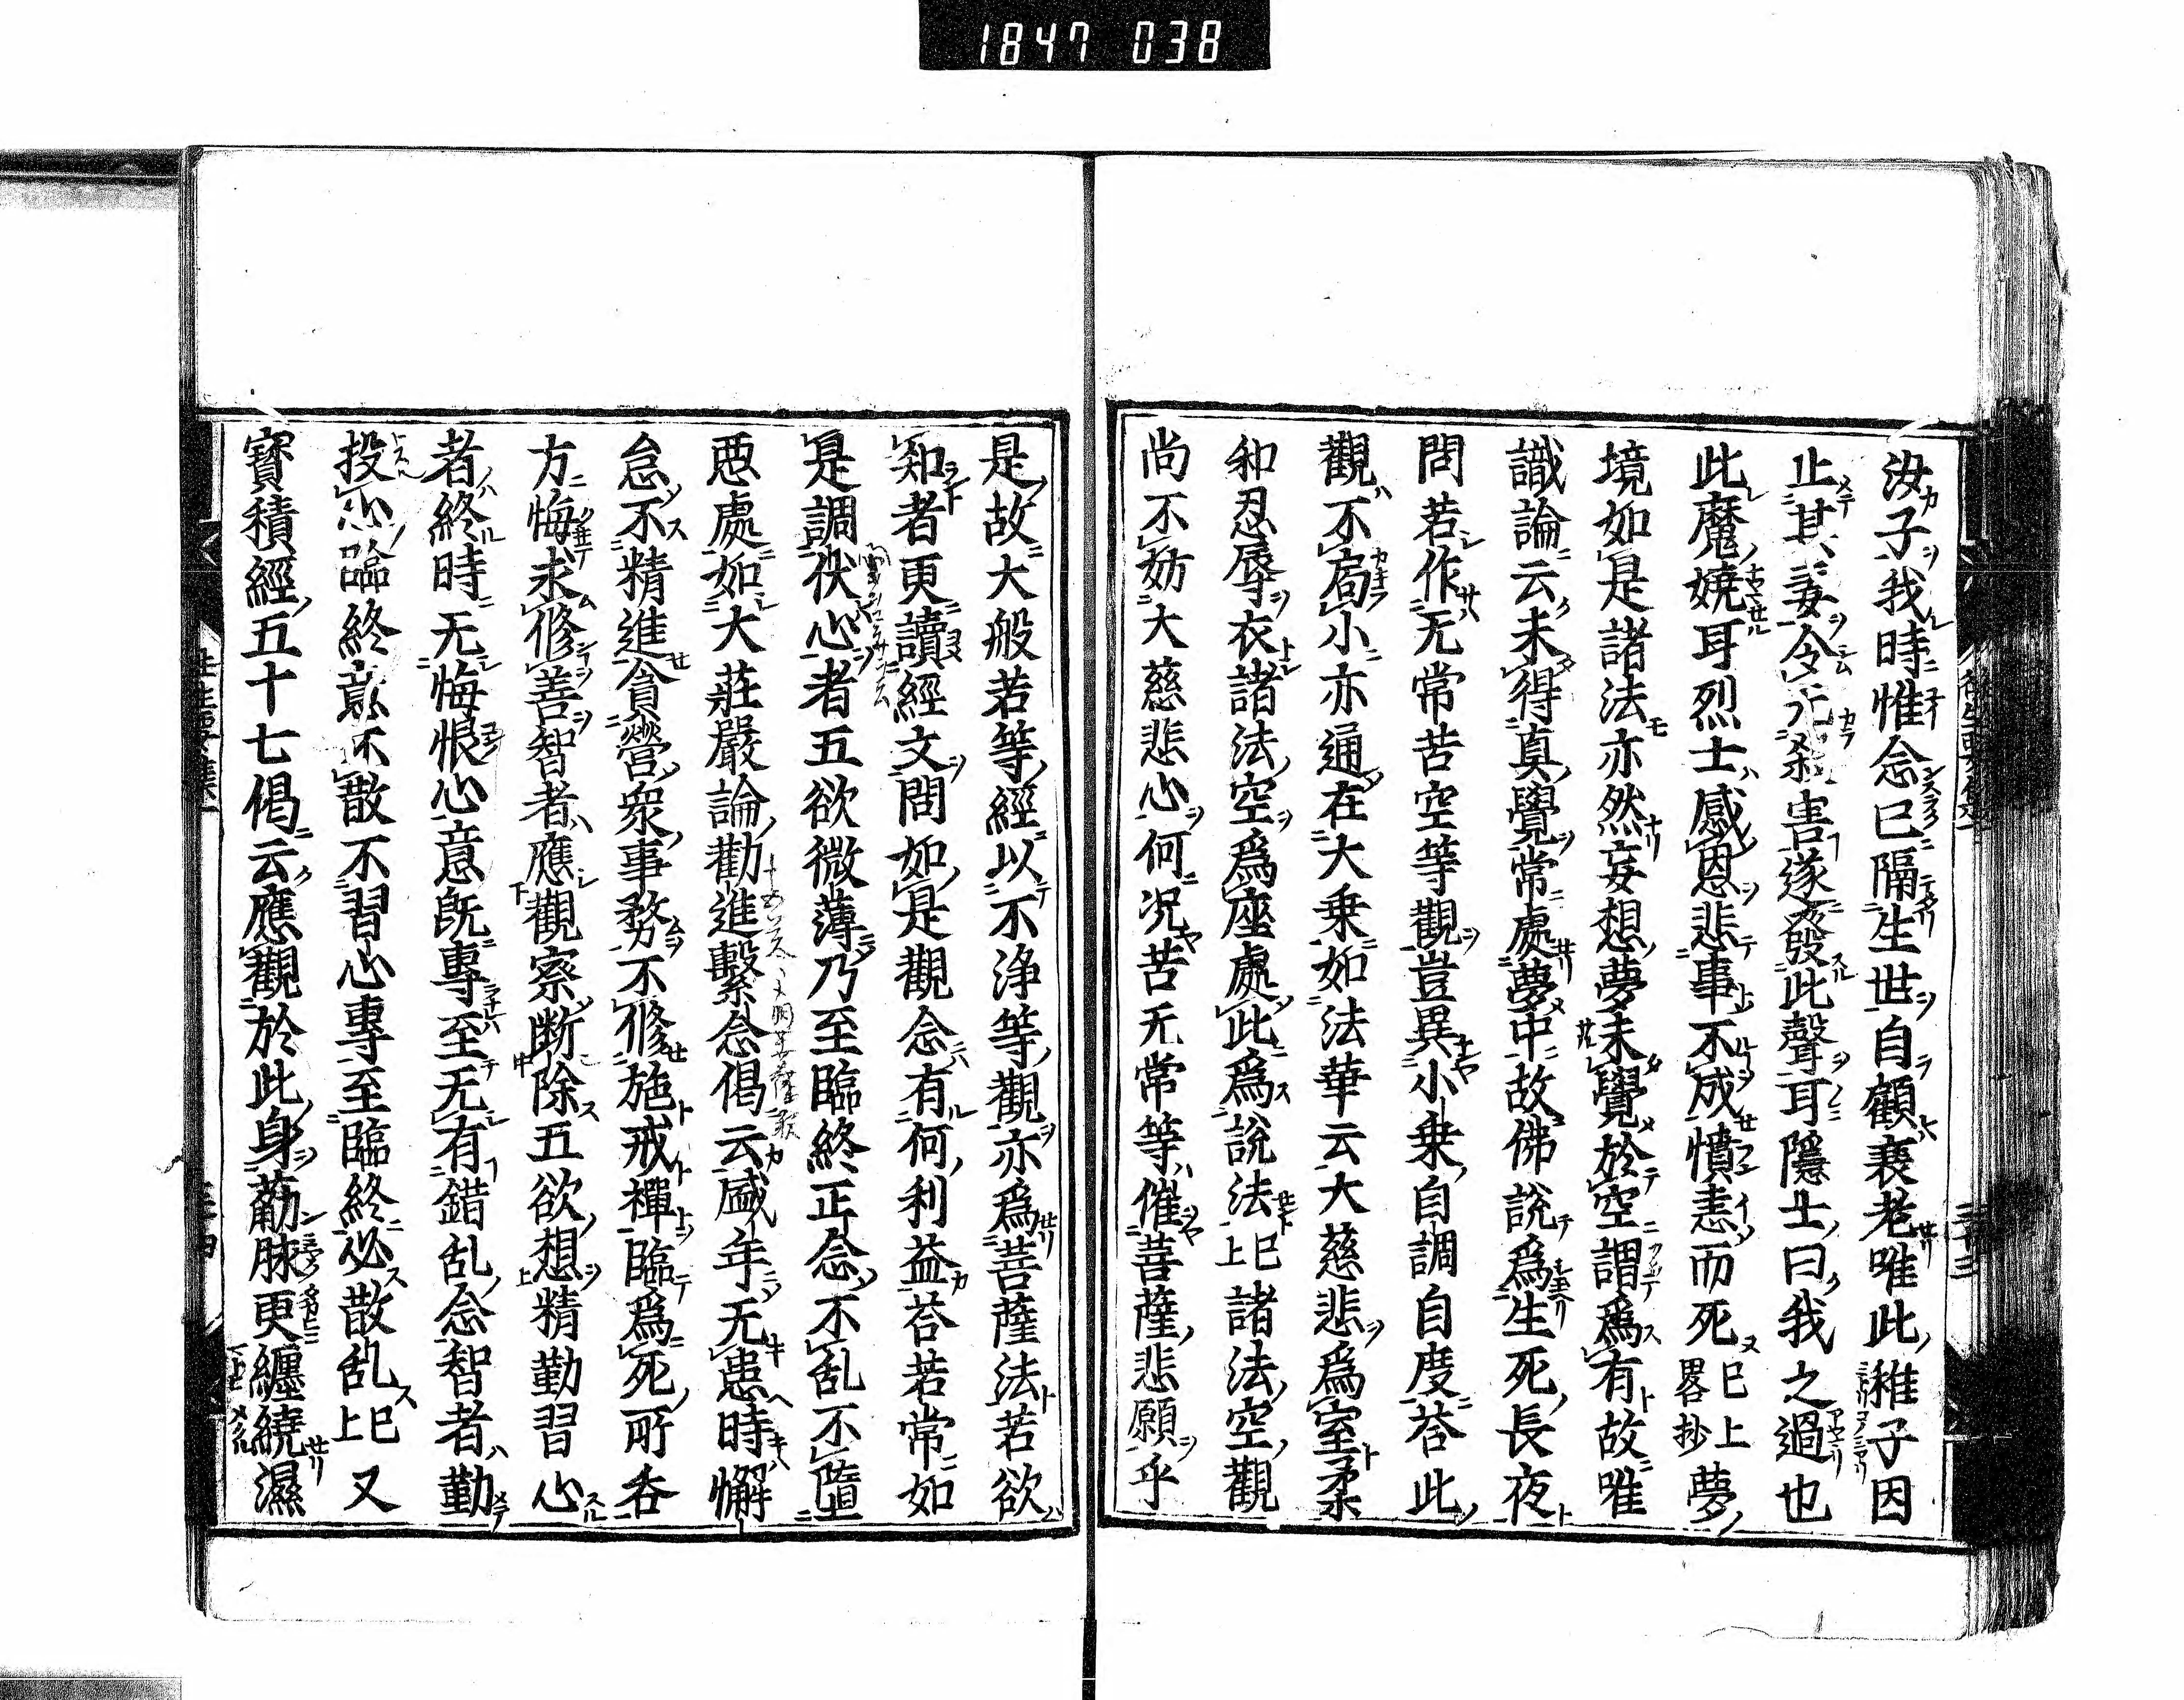 1847 038
汝子我時惟念已隔生世自顧衰老唯此稚子因
止其妻令无殺害遂發此聲耳隱士曰我之過也
此魔嬈耳烈士感恩悲事不成憤恚而死已上畧抄夢
境如是諸法亦然妄想夢未覺於空謂爲有故唯
識論云未得真覺常處夢中故佛說爲生死長夜
問若作无常苦空等觀豈異小乗自調自度荅此
觀不局小亦通在大乗如法華云大慈悲爲室柔
和忍辱衣諸法空爲座處此爲說法已上諸法空觀
尚不妨大慈悲心何況苦无常等催菩薩悲願乎
是故大般若等經以不淨等觀亦爲菩薩法若欲
知者更讀經文問如是觀念有何利益荅若常如
是調伏心者五欲微薄乃至臨終正念不乱不墮
惡處如大莊嚴論勸進繫念偈云盛年无患時懈
怠不精進貪營衆事務不修施戒禪臨爲死所吞
方悔求修善智者應觀察断除五欲想精勤習心
者終時无悔恨心意既專至无有錯乱念智者勤
投心臨終意不散不習心專至臨終必散乱已上又
寶積經五十七偈云應觀於此身筋脉更纏繞濕